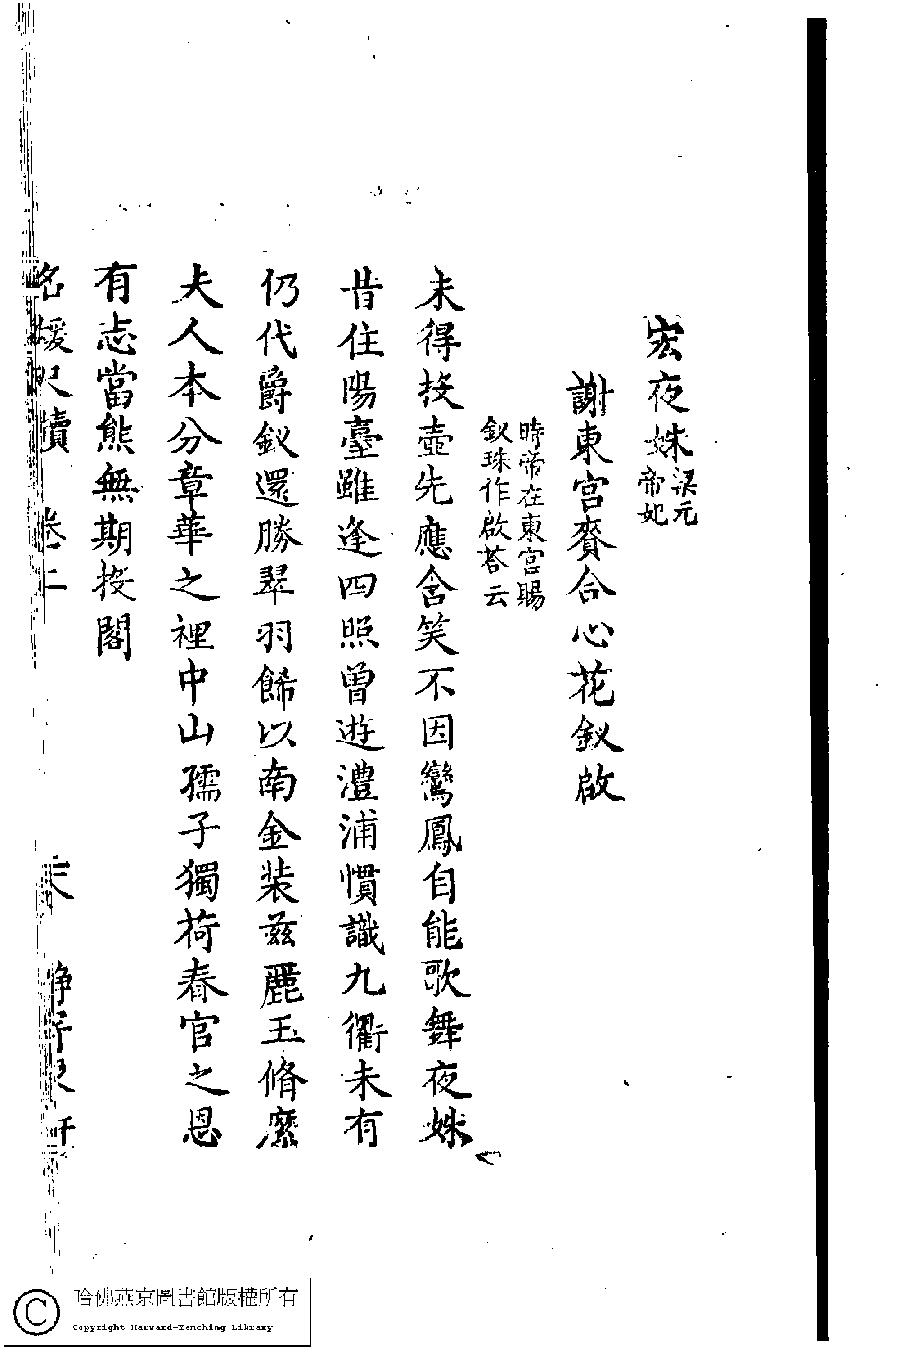 宏夜姝梁元
帝妃
謝東宮賚合心花釵啟
時帝在東宮賜
釵珠作啟荅云
未得投壺先應含笑不因鸞鳳自能歌舞夜姝
昔住陽臺雖逢四照曾遊澧浦慣識九衢未有
仍代爵釵還勝翠羽餙以南金装兹麗玉脩縻
夫人本分章華之裡中山孺子獨荷春官之恩
有志當熊無期投閣
名媛尺牘 卷上
哈佛燕京圖書館版權所有
Copyright Harvard-Yenching Library